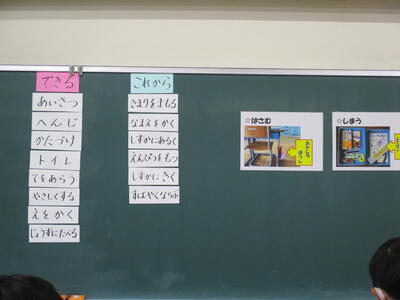 できる
あいさつ
へんじ
かたづけ
トイレ
てをあらう
やさしくする
えをかく
じょうずにたべる
これから
きまりをまもる
なまえをかく
しずかにあるく
えんぴつをもつ
しずかにきく
すばやくならぶ
☆はさむ
☆しまう